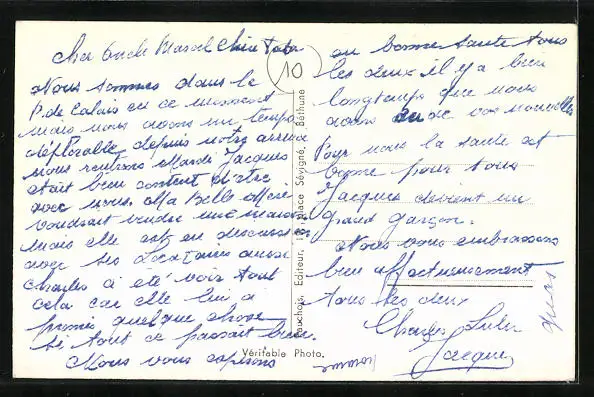 Cher Oncle Marcel Chère Tata
Nous sommes dans le
P. de Calais en ce moment
mais nous avons un temps
déplorable depuis notre arrivée
nous rentrons Mardi Jacques
était bien content d'être
avec nous. Ma Belle Mère
voudrait vendre une maison
mais elle est en discussion
avec ses Locataires aussi
Charles a été voir tout
cela car elle lui a
promis quelque chose
si tout ce passait bien.
Nous vous espérons
en bonne santé tous
les deux il y a bien
longtemps que nous
avons eu de vos nouvelles
Pour nous la santé est
bonne pour tous
Jacques devient un
grand garçon.
Nous vous embrassons
bien affectueusement
tous les deux
Charles
Jacques
10
Gauchois, Editeur, Place Sévigné, Béthune
Vérifable Photo.